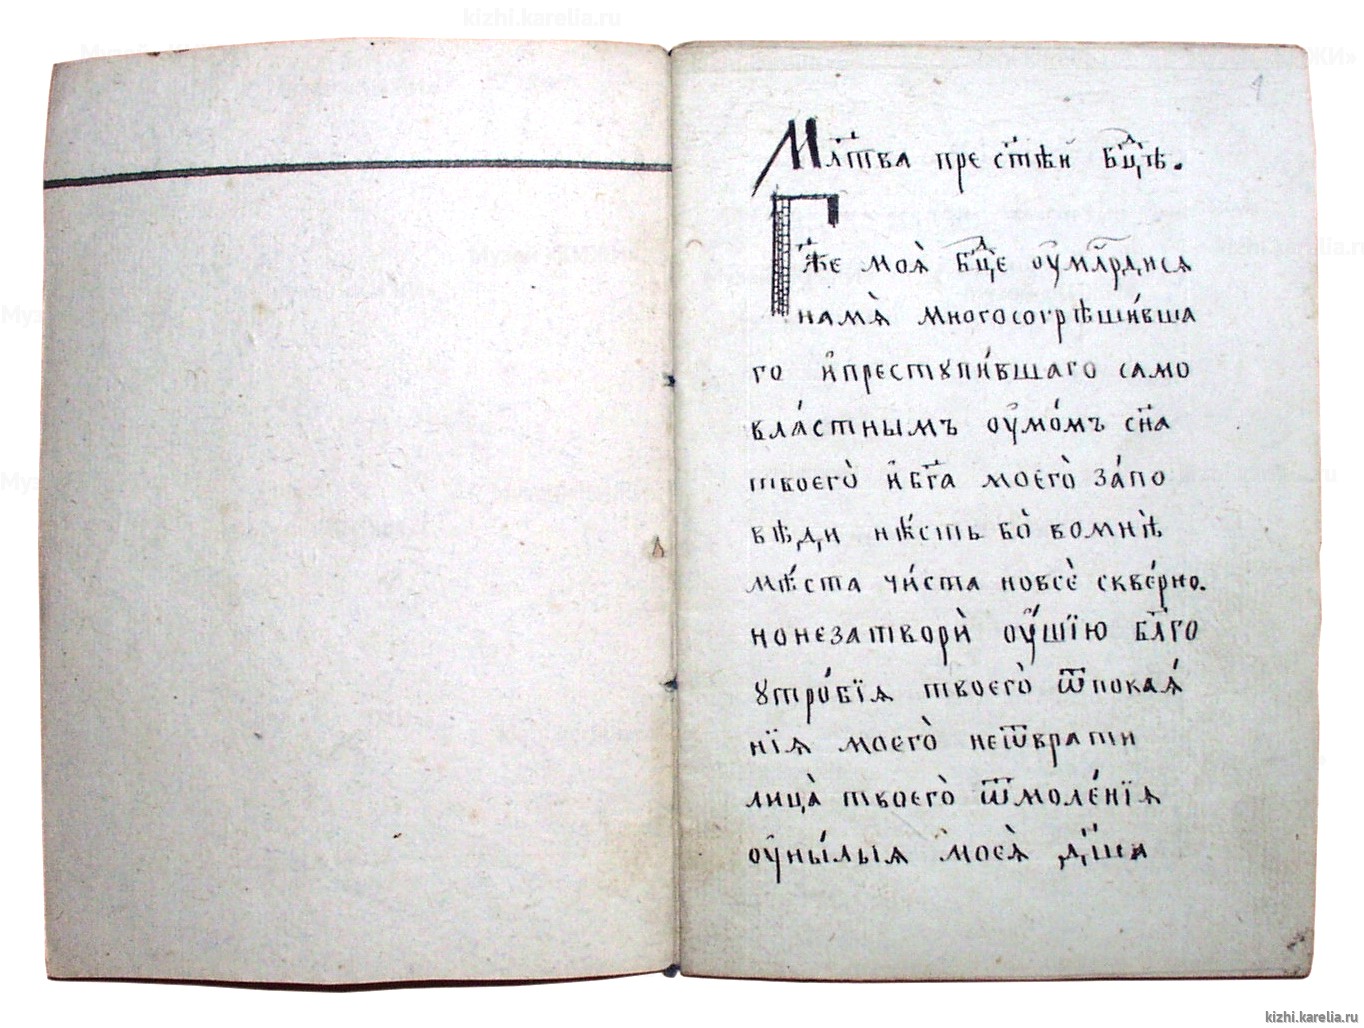 1
Млтва престѣй бцѣ.
Гже моѧ̀ бце ᲂумлрдисѧ
намѧ̀ многосогрѣши́вша
го ипрестꙋпи́вшаго само
вла́стнымъ ᲂумо́мъ сна
твоегѡ̀ ибга моегѡ̀ за́по
вѣди нѣ́сть бо̀ вомнѣ̀
мѣ́ста чи́ста новсѐ скве́рно.
нонезатворѝ ᲂу́шїю блго
ꙋтро́бїѧ твоегѡ̀ ѿпокаѧ́
нїѧ моегѡ̀ неѿврати
лица̀ твоегѡ̀ ѿмоле́нїѧ
ᲂуны́лыѧ моеѧ̀ дша
kizhi.karelia.ru